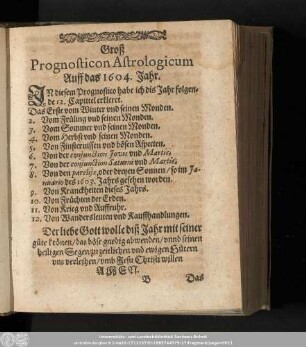 Groß
Prognosticon Astrologicum
Auff das 1604. Jahr.
IN diesem Prognostico habe ich dis Jahr folgen-
de 12. Capittel erkleret.
Das Erste vom Winter vnd seinen Monden.
2. Vom Früling vnd seinen Monden.
3. Vom Sommer vnd seinen Monden.
4. Vom Herbst vnd seinen Monden.
5. Von Finsternussen vnd bösen Aspecten.
6. Von der conjunction Jovis vnd Martis,
7. Von der conjunction Saturni vnd Martis,
8. Von den parelijs, oder dreyen Sonnen / so im Ja-
nuario des 1603. Jahrs gesehen worden.
9. Von Kranckheiten dieses Jahrs.
10. Von Früchten der Erden.
11. Von Krieg vnd Auffruhr.
12. Von Wandersleuten vnd Kauffhandlungen.
Der liebe Gott wolle diß Jahr mit seiner
güte krönen / das böse gnedig abwenden / vnnd seinen
heiligen Segen zu zeitlichen vnd ewigen Gütern
vns verleihen / vmb Jesu Christi willen
AMEN.
B Das